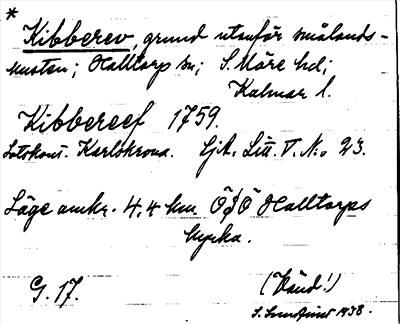 *
Kibberev, grund utanför smålands-
kusten; Halltorp sn; S. Möre hd;
Kalmar l.
Kibbereef 1759.
Lotskont. Karlskrona. Sjk. Litt. T. No 23.
Läge omkr. 4,4 km ÖSÖ Halltorps
kyrka.
G. 17.
(Vänd!)
1938.